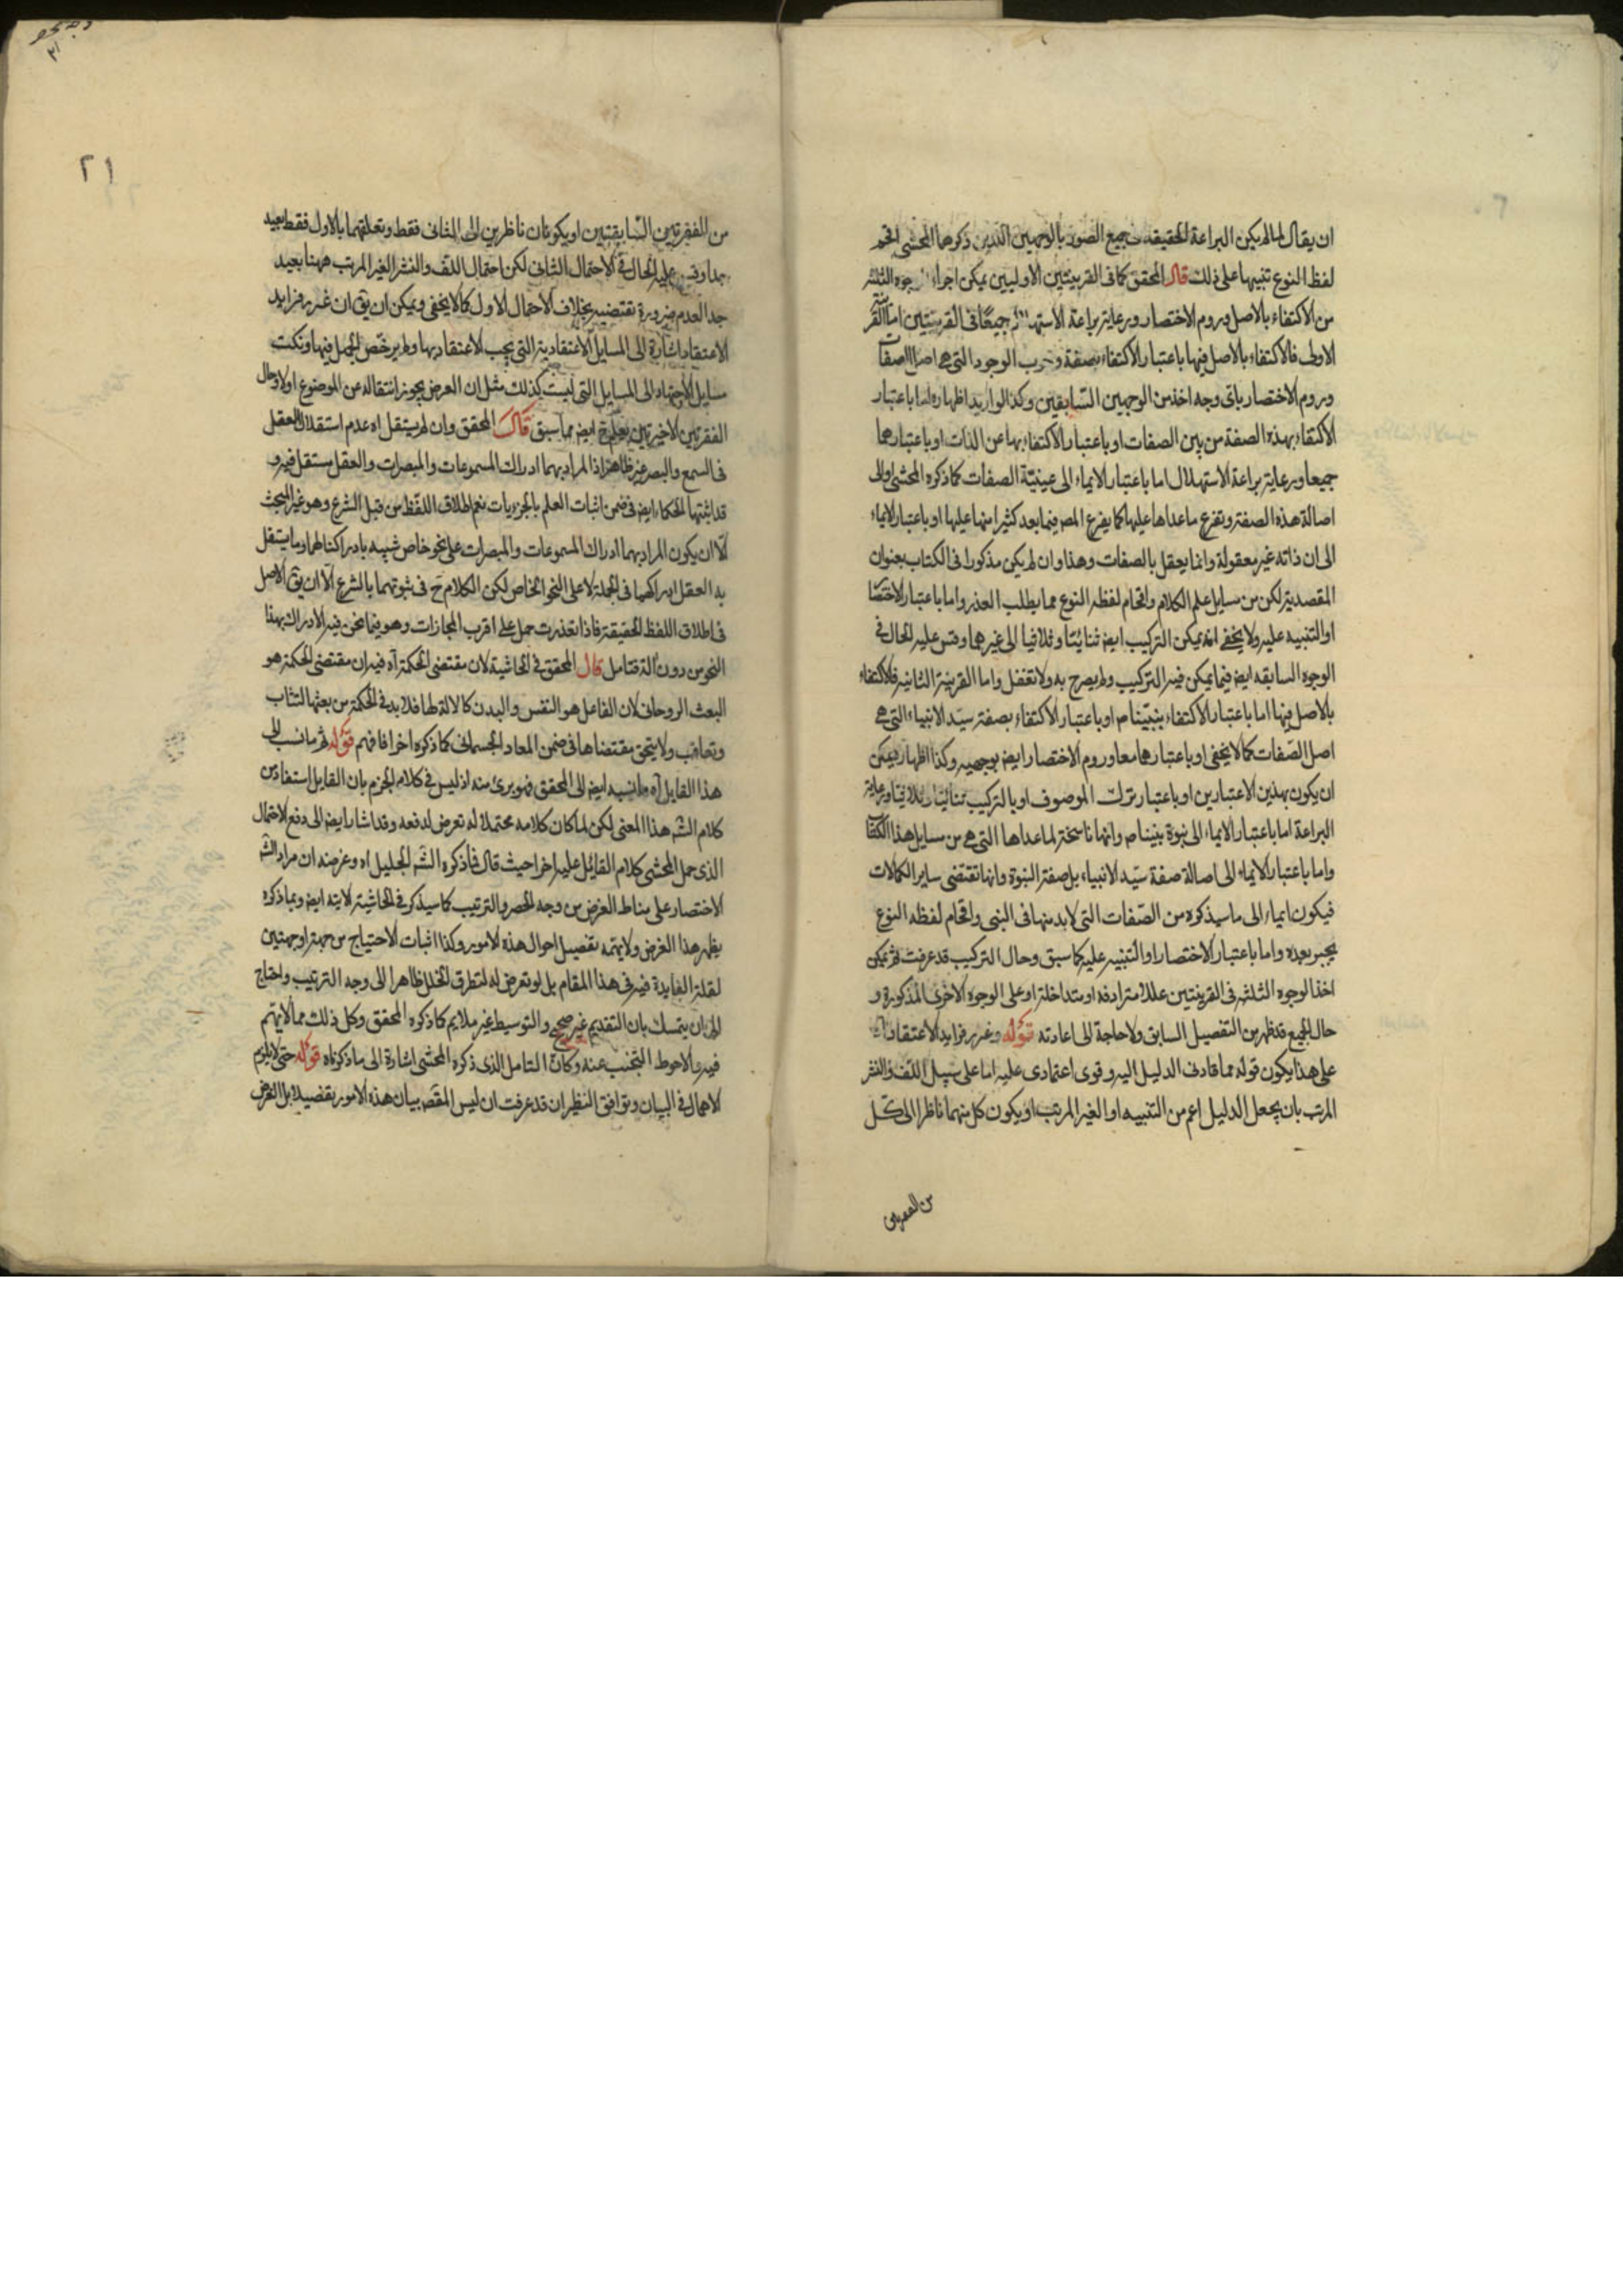 ان يقال لما لم يكن البراعة الحقيقة في جميع الصور بالوجهين اللذين ذكرهما المحشي اقحم
لفظ النوع تنبيها على ذلك قال المحقق كما في القرينتين الاوليين يمكن اجراء الوجوه الثلثة
من الاكتفاء بالاصل وروم الاختصار ورعاية براعة الاستهلال جميعًا في القرينتين اما القرينة
الاولى فالاكتفاء بالاصل فيها باعتبار الاكتفاء بصفة وجوب الوجود التي هي اصل الصفات
وروم الاختصار باي وجه اخذ من الوجهين السّابقين وكذا لو اريد اظهاره اما باعتبار
الاكتفاء بهذه الصفة من بين الصفات او باعتبار الاكتفاء بها عن الذات او باعتبارهما
جميعا ورعاية براعة الاستهلال اما باعتبار الايماء الى عينيّة الصفات كما ذكره المحشي او الى
اصالة هذه الصفة وتفرع ماعداها عليها كما يفرع المص فيما بعد كثيرا منها عليها او باعتبار الايماء
الى ان ذاته غير معقولة وانما يعقل بالصفات وهذا وان لم يكن مذكورا في الكتاب بعنوان
المقصدية لكن من مسايل علم الكلام واقحام لفظة النوع مما يطلب العذر واما باعتبار الاختصار
او التنبيه عليه ولا يخفى انه يمكن التركيب ايض ثنائيًا وثلاثيا الى غيرهما وقس عليه الحال في
الوجوه السابقه ايض فيما يمكن فيه التركيب ولم يصرح به ولا تغفل واما القرينة الثانية فالاكتفاء
بالاصل فيها اما باعتبار الاكتفاء بنبيّنا ص او باعتبار الاكتفاء بصفة سيّد الانبياء التي هي
اصل الصّفات كما لا يخفى او باعتبارهما معا وروم الاختصار ايض بوجهيه وكذا اظهاره يمكن
ان يكون بهذين الاعتبارين او باعتبار ترك الموصوف او بالتركيب ثنائيًا وثلاثيًا ورعاية
البراعة اما باعتبار الايماء الى نبوة نبينا ص وانها ناسخة لما عداها التي هي من مسايل هذا الكتاب
واما باعتبار الايماء الى اصالة صفة سيّد الانبياء بل صفة النبوة وانها تقتضي ساير الكمالات
فيكون ايماء الى ما سيذكره من الصّفات التي لابد منها في النبي واقحام لفظه النوع
يجبر بعده واما باعتبار الاختصار او التنبيه عليه كما سبق وحال التركيب قد عرفت ثم يمكن
اخذ الوجوه الثلثة في القرينتين عللا مترادفه او متداخلة او على الوجوه الاخرى المذكورة و
حال الجميع قد ظهر من التفصيل السابق ولا حاجة الى اعادته قوله وغرر فرايد الاعتقاد آه
على هذا يكون قوله مما قادني الدليل اليه وقوى اعتمادى عليه اما على سبيل اللّف والنشر
المرتب بان يجعل الدليل اعم من التنبيه او الغير المرتب او يكون كل منهما ناظرا الى كلّ
من الفقرتين
٢١
من الفقرتين السّابقتين او يكونان ناظرين الى الثانى فقط وتعلقهما بالاول فقط بعيد
جدا وقس عليه الحال في الاحتمال الثانى لكن احتمال اللّف والنشر الغير المرتب ههنا بعيد
جدا لعدم ضرورة تقتضيه بخلاف الاحتمال الاول كما لا يخفى ويمكن ان يق ان غرر فرايد
الاعتقاد اشارة الى المسايل الاعتقادية التي يجب الاعتقاد بها ولم يرخص الجهل فيها ونكت
مسايل الاجتهاد الى المسايل التي ليست كذلك مثل ان العرض يجوز انتقاله عن الموضوع اولا وحال
الفقرتين الاخيرتين يعلم ح ايض مما سبق قال المحقق وان لم يستقل اه عدم استقلال العقل
في السمع والبصر غير ظاهر اذا المراد بهما ادراك المسموعات والمبصرات والعقل مستقل فيه و
قد اثبتها الحكماء ايض في ضمن اثبات العلم بالجزئيات نعم اطلاق اللفظ من قبل الشرع وهو غير البحث
الّا ان يكون المراد بهما ادراك المسموعات والمبصرات على نحو خاص شبيه بادراكنا لها وما يستقل
به العقل ادراكهما في الجملة لا على النحو الخاص لكن الكلام ح في ثبوتهما بالشرع الّا ان يق الاصل
في اطلاق اللفظ الحقيقة فاذا تعذرت حمل على اقرب المجازات وهو فيما نحن فيه الادراك بهذا
النحو من دون الة فتامل قال المحقق في الحاشية لان مقتضى الحكمة آه فيه ان مقتضى الحكمة هو
البعث الروحاني لان الفاعل هو النفس والبدن كالالة لها فلابد في الحكمة من بعثها لتثاب
وتعاقب ولا يتحقق مقتضاها في ضمن المعاد الجسمانى كما ذكره اخرا فافهم قوله ثم ما نسب الى
هذا القايل آه ما نسبه ايض الى المحقق فهو برئ منه اذ ليس في كلامه الجزم بان القايل استفاد من
كلام الشه هذا المعنى لكن لما كان كلامه محتملا له تعرض لدفعه وقد اشار ايض الى دفع الاحتمال
الذى حمل المحشى كلام القائل عليه اخرا حيث قال فما ذكره الشه الجليل اه وغرضه ان مراد الشه
الاختصار على مناط الغرض من وجه الحصر والترتيب كما سيذكر في الحاشية الاتيه ايض وبما ذكره
يظهر هذا الغرض ولا يتمه تفصيل احوال هذه الامور وكذا اثبات الاحتياج من جهة او جهتين
لقلة الفايدة فيه في هذا المقام بل لو تعرض له لتطرق الخلل ظاهرا الى وجه الترتيب واحتاج
الى ان يتمسك بان التقديم غير صحيح والتوسيط غير ملايم كما ذكره المحقق وكل ذلك مما لا يهتم
فيه والاحوط التجنب عنه وكان التامل الذى ذكره المحشى اشارة الى ما ذكرناه قوله حتى لا يلزم
الاهمال في البيان وتوافق النظيران قد عرفت ان ليس المقص بيان هذه الامور تفصيلا بل الغرض